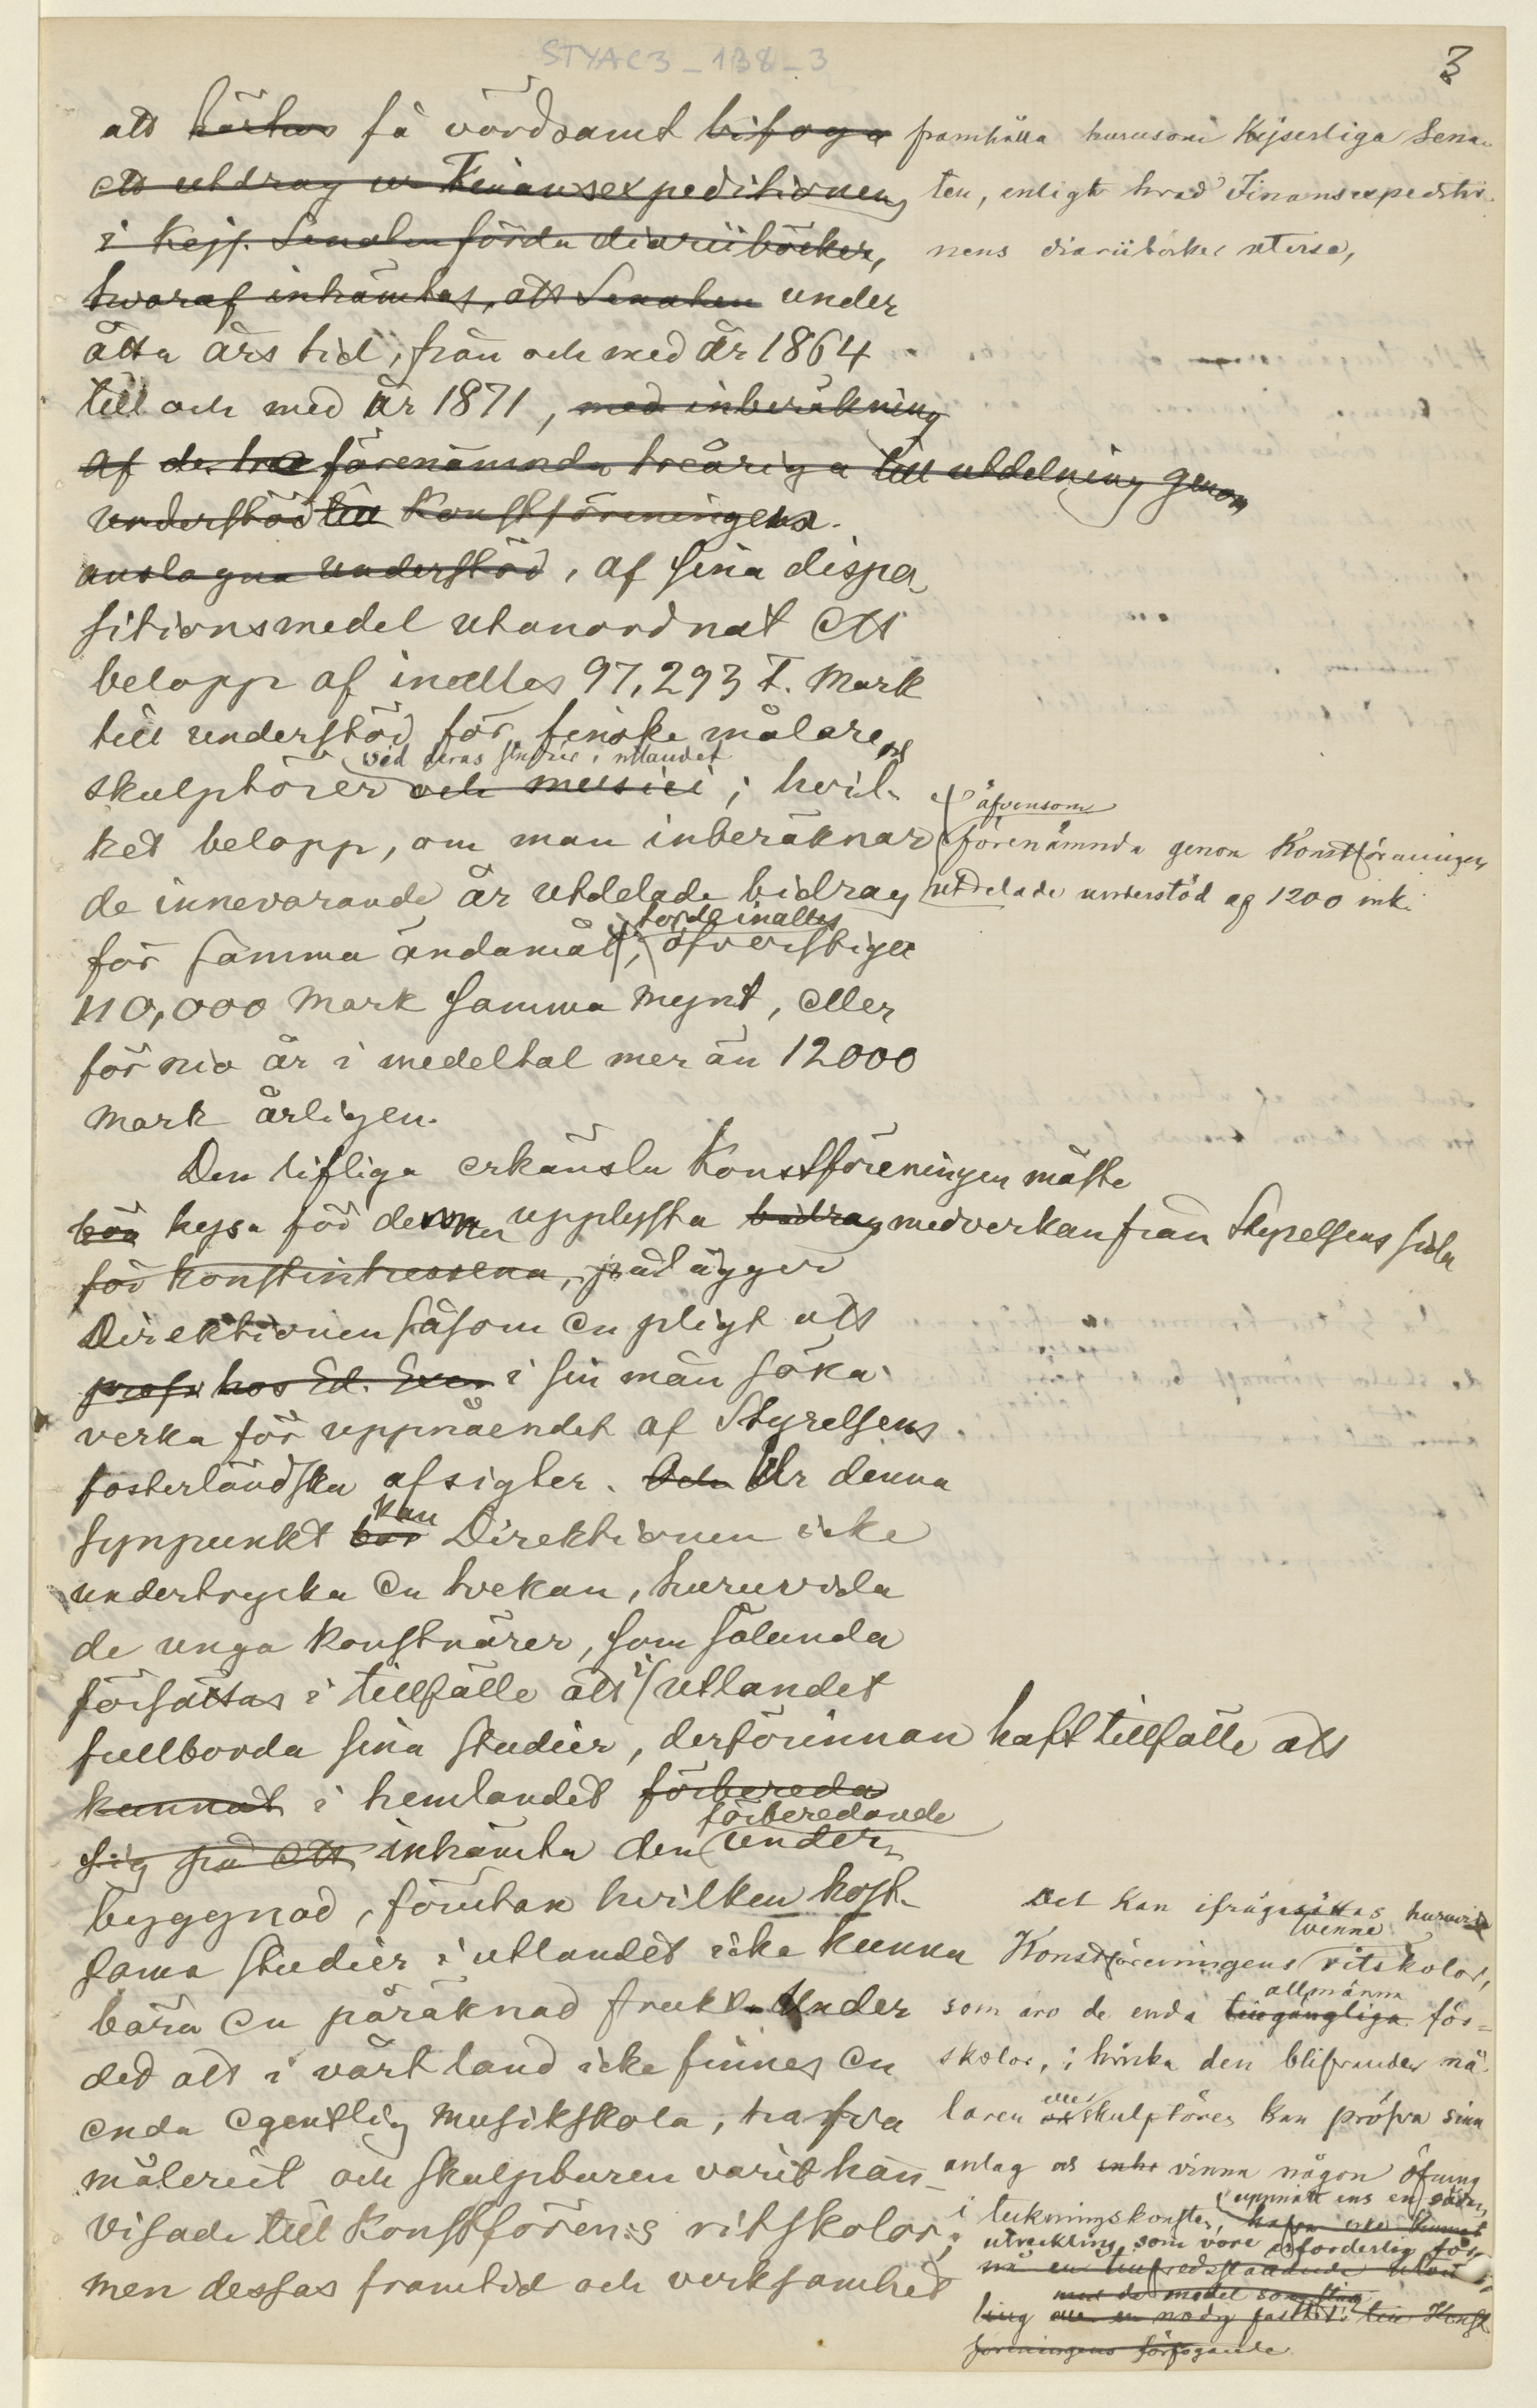 STYAC3_138_3
3
att härhos få vördsamt bifoga
ett utdrag ur Finansexpeditionens
i Kejs. Senaten förda diariiböcker,
hvaraf inhämtas, att Senaten under
åtta års tid, från och med år 1864
till och med år 1871, med inberäkning
af de tre förenämnda treåriga till utdelning genom
understöd till Konstföreningens
anslagna understöd, af sina dispo-
sitionsmedel utanordnat ett
belopp af inalles 97,293 F. Mark
till understöd för finske målare och
vid deras studier i utlandet
skulptörer och musici; hvil-
ket belopp, om man inberäknar
de innevarande år utdelade bidrag
torde inalles
för samma ändamål, öfverstiga
110,000 Mark samma mynt, eller
för nio år i medeltal mer än 12000
Mark årligen.
Den lifliga erkänsla Konstföreningen måste
bör hysa för denna upplysta bidrag medverkan från Styrelsens sida
för konstintressena, ålägger
Direktionen såsom en pligt att
hos Ed. Exc. i sin mån söka
verka för uppnåendet af Styrelsens
fosterländska afsigter. Och Ur denna
kan
synpunkt bör Direktionen icke
undertrycka en tvekan, huruvida
de unga konstnärer, som sålunda
försättas i tillfälle att i utlandet
fullborda sina studier, derförinnan haft tillfälle att
kunnat i hemlandet förbereda
förberedande
sig på ett inhämta den under-
byggnad, förutan hvilken kost-
sama studier i utlandet icke kunna
bära en påräknad frukt. Under
det att i vårt land icke finnes en
enda egentlig musikskola, hafva
måleriet och skulpturen varit hän-
visade till Konstfören:s ritskolor;
men dessas framtid och verksamhet
framhålla hurusom Kejserliga Sena-
ten, enligt hvad Finansexpeditio-
nens diariiböcker utvisa,
äfvensom
förenämnda genom Konstföreningen
utdelade understöd af 1200 mk.
Det kan ifrågasättas huruvida
tvenne
Konstföreningens ritskolor,
allmänna
som äro de enda tillgängliga för-
skolor, i hvilka den blifvande må-
eller
laren och skulptören kan pröfva sina
anlag och vinna någon öfning
i teckningskonsten, hafva icke kunnat
uppnått ens en sådan
utveckling, som vore erforderlig för
nå en tillfredsställande utveck-
med de medel som stått
ling till Konst-
föreningens förfogande